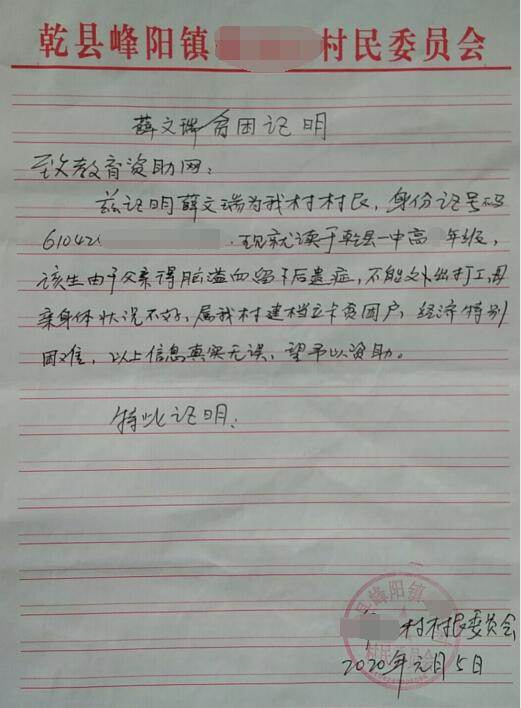 乾县峰阳镇 村民委员会
薛文瑞贫困证明
致教育资助网:
兹证明薛文瑞为我村村民,身份证号码
61042 .现就读于乾县一中高 年级,
该生由于父亲得脑溢血留下后遗症,不能外出打工,母
亲身体状况不好,属我村建档立卡贫困户,经济特别
困难,以上信息真实无误,望予以资助。
特此证明:
县峰阳镇
村村民委员会
村民委员会
2020年元月5日